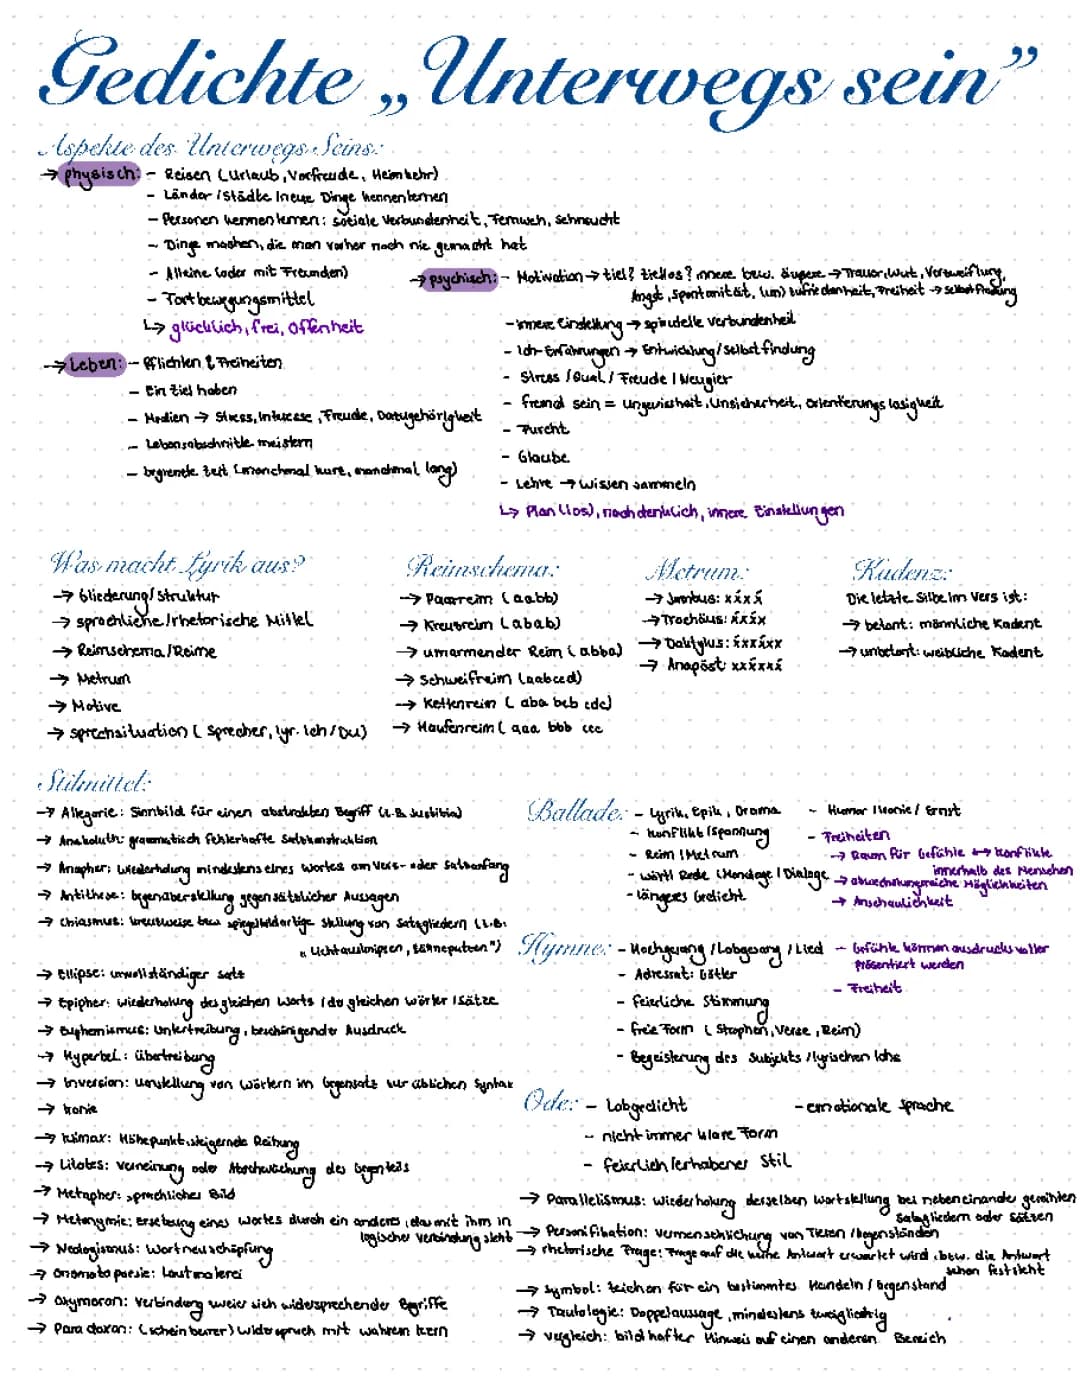 Gedichte „Unterwegs sein"
Aspekte des Unterwegs Seins:
→ physisch: - Reisen (Urlaub, Vorfreude, Heimkehr)
- Länder / Städte / neue Dinge kennenlernen
- Personen kennenlernen: soziale Verbundenheit, Fernweh, Sehnsucht
- Dinge machen, die man vorher noch nie gemacht hat
- Alleine (oder mit Freunden)
- Fortbewegungsmittel
↳ glücklich, frei, Offenheit
→ psychisch: - Motivation → Ziel? Ziellos? innere bzw. äußere → Trauer, Wut, Verzweiflung,
Angst, Spontanität, (un)zufriedenheit, Freiheit → Selbstfindung
- innere Einstellung → spirituelle Verbundenheit
- Ich-Erfahrungen → Entwicklung / Selbstfindung
- Stress / Qual / Freude / Neugier
- fremd sein = Ungewissheit, Unsicherheit, Orientierungslosigkeit
- Furcht
- Glaube
- Lehre → Wissen sammeln
↳ Plan(los), nachdenklich, innere Einstellungen
→ Leben: - Pflichten & Freiheiten
- Ein Ziel haben
- Medien → Stress, Interesse, Freude, Dazugehörigkeit
- Lebensabschnitte meistern
- begrenzte Zeit (manchmal kurz, manchmal lang)
Was macht Lyrik aus?
→ Gliederung / Struktur
→ sprachliche / rhetorische Mittel
→ Reimschema / Reime
→ Metrum
→ Motive
→ Sprechsituation (Sprecher, lyr. Ich / Du)
Reimschema:
→ Paarreim (aabb)
→ Kreuzreim (abab)
→ umarmender Reim (abba)
→ Schweifreim (aabccd)
→ Kettenreim (aba bcb cdc)
→ Haufenreim (aaa bbb ccc
Metrum:
→ Jambus: xx́xx́
→ Trochäus: x́xx́x
→ Daktylus: x́xxx́xx
→ Anapäst: xxx́xxx́
Kadenz:
Die letzte Silbe im Vers ist:
→ betont: männliche Kadenz
→ unbetont: weibliche Kadenz
Stilmittel:
→ Allegorie: Sinnbild für einen abstrakten Begriff (z.B. Justitia)
→ Anakoluth: grammatisch fehlerhafte Satzkonstruktion
→ Anapher: Wiederholung mindestens eines Wortes am Vers- oder Satzanfang
→ Antithese: Gegenüberstellung gegensätzlicher Aussagen
→ Chiasmus: kreuzweise bzw. spiegelbildartige Stellung von Satzgliedern (z.B.
„Licht ausknipsen, Zähneputzen")
→ Ellipse: unvollständiger Satz
→ Epipher: Wiederholung des gleichen Worts / der gleichen Wörter / Sätze
→ Euphemismus: Untertreibung, beschönigender Ausdruck
→ Hyperbel: Übertreibung
→ Inversion: Umstellung von Wörtern im Gegensatz zur üblichen Syntax
→ Ironie
→ Klimax: Höhepunkt, steigernde Reihung
→ Litotes: Verneinung oder Abschwächung des Gegenteils
→ Metapher: sprachliches Bild
→ Metonymie: Ersetzung eines Wortes durch ein anderes, das mit ihm in
logischer Verbindung steht
→ Neologismus: Wortneuschöpfung
→ Onomatopoesie: Lautmalerei
→ Oxymoron: Verbindung zweier sich widersprechender Begriffe
→ Paradoxon: (scheinbarer) Widerspruch mit wahrem Kern
Ballade: - Lyrik, Epik, Drama
- Konflikt / Spannung
- Reim / Metrum
- wörtl Rede (Monologe / Dialoge
- längeres Gedicht
- Humor / Ironie / Ernst
- Freiheiten
→ Raum für Gefühle ↔ Konflikte
innerhalb des Menschen
→ abwechslungsreiche Möglichkeiten
→ Anschaulichkeit
Hymne: - Hochgesang / Lobgesang / Lied
- Adressat: Götter
- feierliche Stimmung
- freie Form (Strophen, Verse, Reim)
- Begeisterung des Subjekts / lyrischen Ichs
- Gefühle können ausdrucksvoller
präsentiert werden
- Freiheit
Ode: - Lobgedicht
- nicht immer klare Form
- feierlich / erhabener Stil
- emotionale Sprache
→ Parallelismus: Wiederholung derselben Wortstellung bei nebeneinander gereihten
Satzgliedern oder Sätzen
→ Personifikation: Vermenschlichung von Tieren / Gegenständen
→ rhetorische Frage: Frage auf die keine Antwort erwartet wird, bzw. die Antwort
schon feststeht
→ Symbol: Zeichen für ein bestimmtes Handeln / Gegenstand
→ Tautologie: Doppelaussage, mindestens zweigliedrig
→ Vergleich: bildhafter Hinweis auf einen anderen Bereich